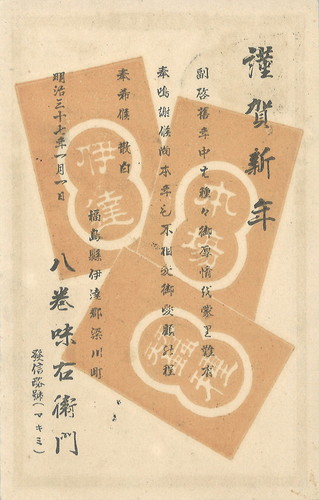 謹賀新年
副啓舊年中ハ種々御厚情ヲ蒙り難有
奉鳴謝候尚本年も不相変御愛顧ノ程
奉希候 敬白
明治三十七年一月一日
福島縣伊達郡梁川町
八巻味右衞門
發信略號(ヤマキミ)
本場
伊達